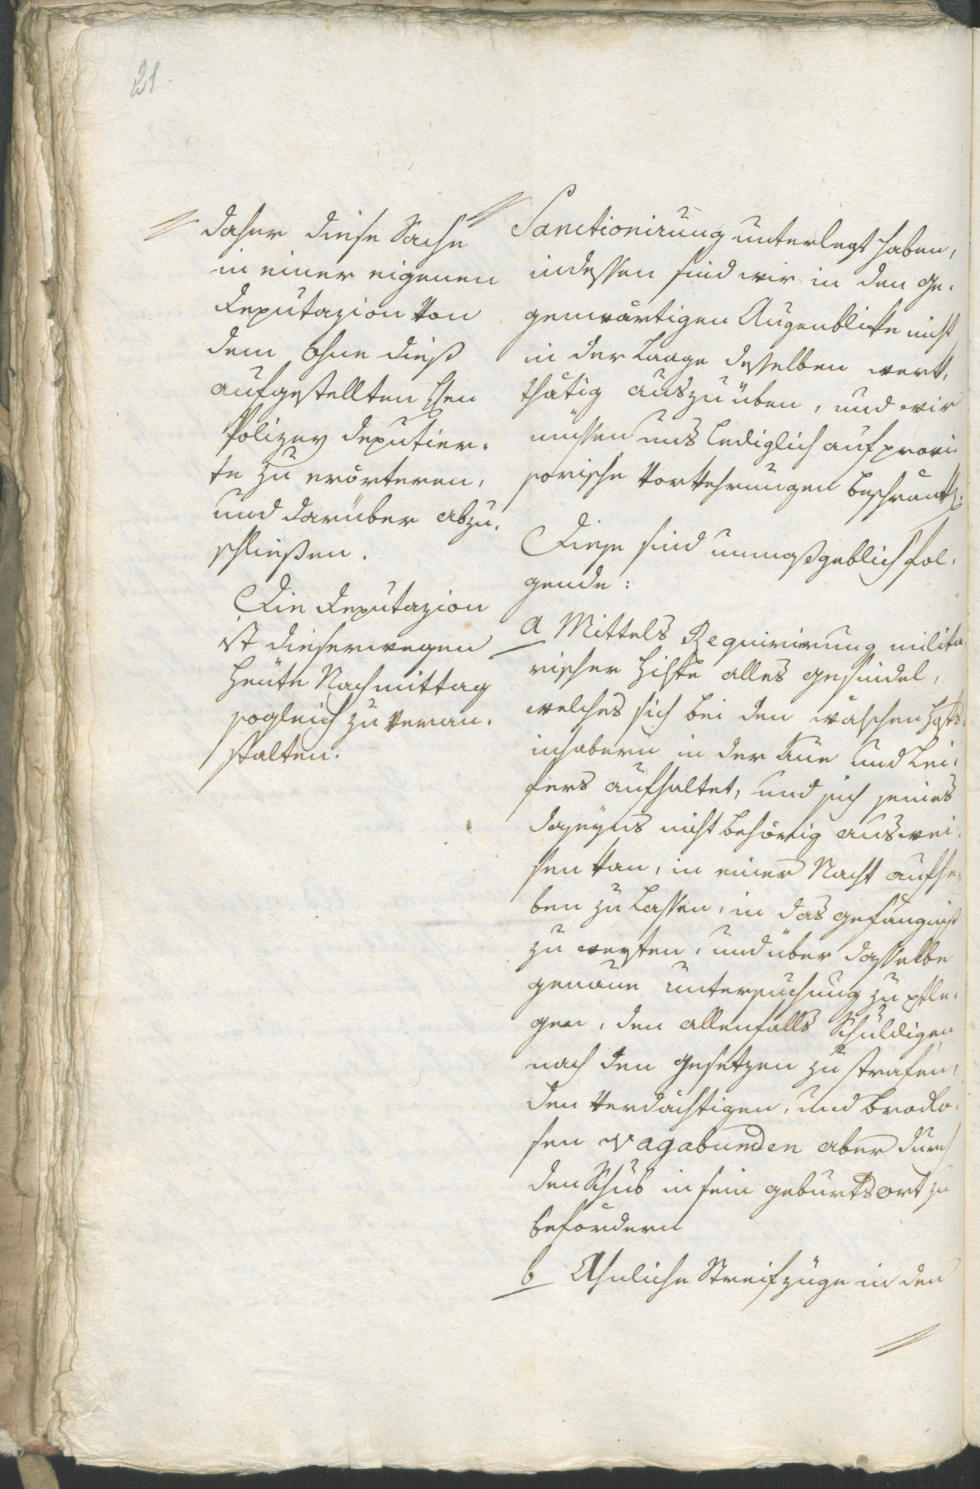 21
daher diese Sache
in einer eigenen
Deputazion von
dem ohne dieß
aufgestellten Hen
Polizey deputier-
te zu erörteren,
und darüber abzu-
schließen.
Die Deputazion
ist dieserwegen
heute Nachmittag
sogleich zu veran-
stalten.
Sanctionirung unterlegt haben,
indessen sind wir in den ge-
genwärtigen Augenblicke nicht
in der Laage desselben werk-
thätig auszuüben, und wir
müssen uns lediglich auf provi
sorische Vorkehrungen beschränk
Diese sind unmaßgeblich fol-
gende:
a Mittels Requirirung milita
rischer Hilfe alles gesindel,
welches sich bei den wälschen
inhabern in der Aue und Lei-
fers aufhaltet, und sich seines
daseyns nicht behörig auswei-
sen kan, in einer Nacht aufhe-
ben zu lassen, in das gefängniß
zu werfen, und über dasselbe
genaue untersuchung zu pfle-
gen, den allenfalls Schuldigen
nach den gesetzen zu strafen,
den verdächtigen, und brodlo-
sen vagabunden aber durch
den Schub in sein geburtsort zu
befördern
b Ähnliche Streifzüge in den